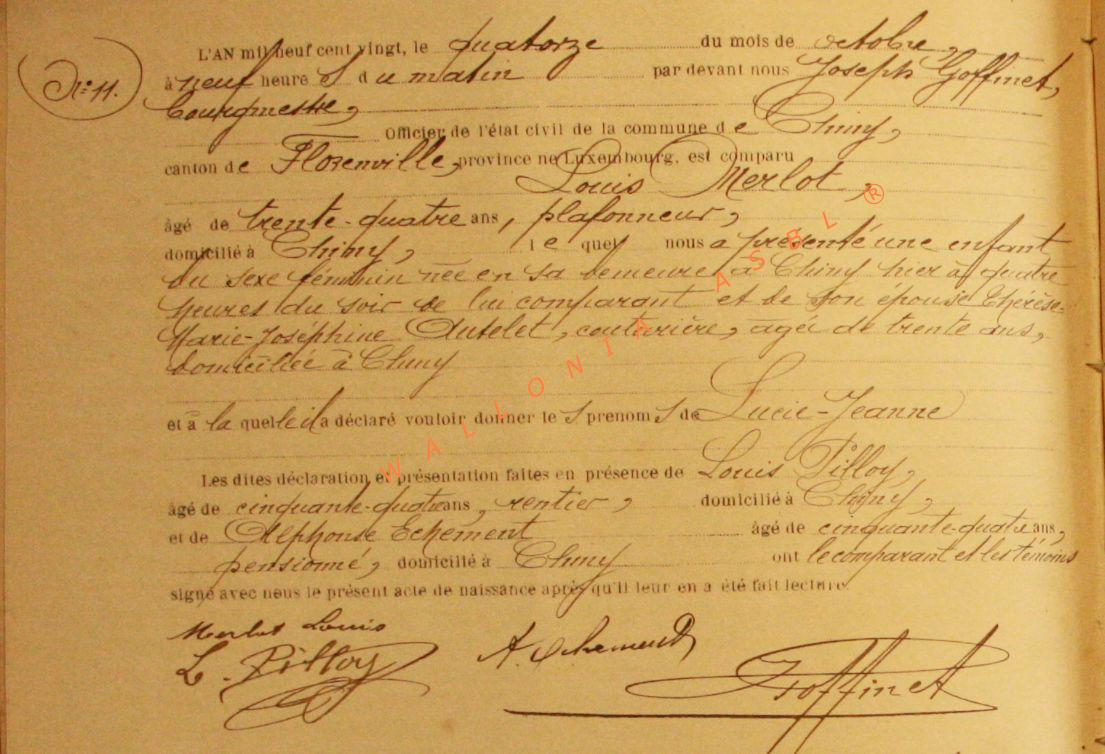 L'AN mil neuf cent vingt, le quatorze du mois de octobre,
N° 11.
à neuf heure s du matin par devant nous Joseph Goffinet,
bourgmestre,
Officier de l'état civil de la commune de Chiny,
canton de Florenville, province de Luxembourg, est comparu
Louis Merlot,
âgé de trente-quatre ans, plafonneur,
domicilié à Chiny, le quel nous a présenté une enfant
du sexe féminin née en sa demeure à Chiny hier à quatre
heures du soir de lui comparant et de son épouse Thérèse-
Marie-Joséphine Autelet, couturière, âgée de trente ans,
domiciliée à Chiny
et à la quelle il a déclaré vouloir donner le s prénom s de Lucie-Jeanne
Les dites déclaration et présentation faites en présence de Louis Pilloy,
âgé de cinquante-quatre ans, rentier, domicilié à Chiny,
et de Alphonse Echement âgé de cinquante-quatre ans,
pensionné, domicilié à Chiny ont le comparant et les témoins
signé avec nous le présent acte de naissance après qu'il leur en a été fait lecture.
Merlot Louis
L. Pilloy A. Echement Goffinet
WALLONIA ASBL ®